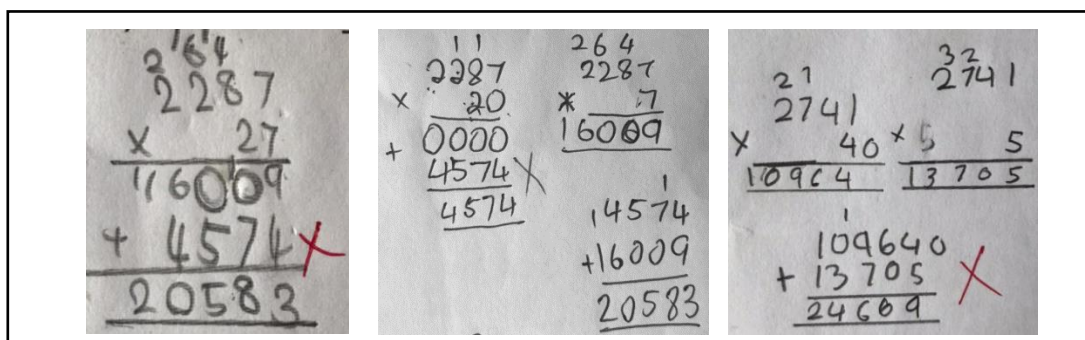 2 1 6 1 4
2287
× 27
1 16009
+ 4574 X
20583
1 1
2287
× 20
0000
+ 4574 X
4574
264
2287
* 7
16009
1
1 4574
+16009
20583
21
2741
× 40
10964
32
2741
× 5 5
13705
1
109640
+ 13705 X
24669